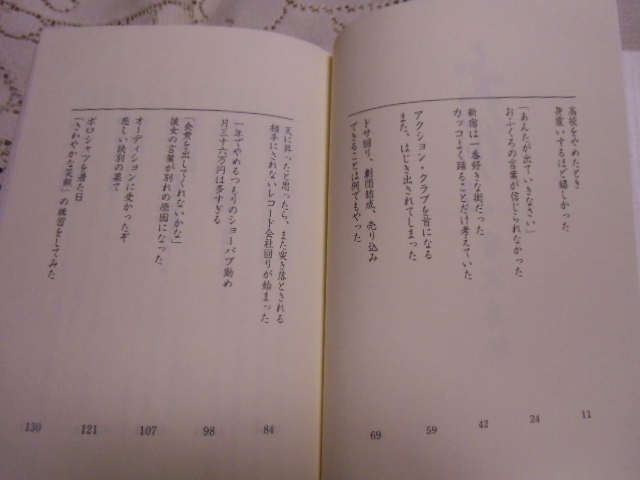 高校をやめたとき
身震いするほど嬉しかった
11
「あんたが出ていきなさい」
おふくろの言葉が信じられなかった
24
新宿は一番好きな街だった
カッコよく踊ることだけ考えていた
42
アクション・クラブを首になる
また、はじき出されてしまった
59
ドサ回り、劇団結成、売り込み
できることは何でもやった
69
天に昇ったと思ったら、また突き落とされる
相手にされないレコード会社回りが始まった
84
一年でやめるつもりのショーパブ勤め
月三十六万円は多すぎる
98
「会費を出してくれないかな」
彼女の言葉が別れの原因になった
107
オーディションに受かったぞ
悲しい訣別の果て
121
ポロシャツを着た日
「さわやかな笑顔」の練習をしてみた
130